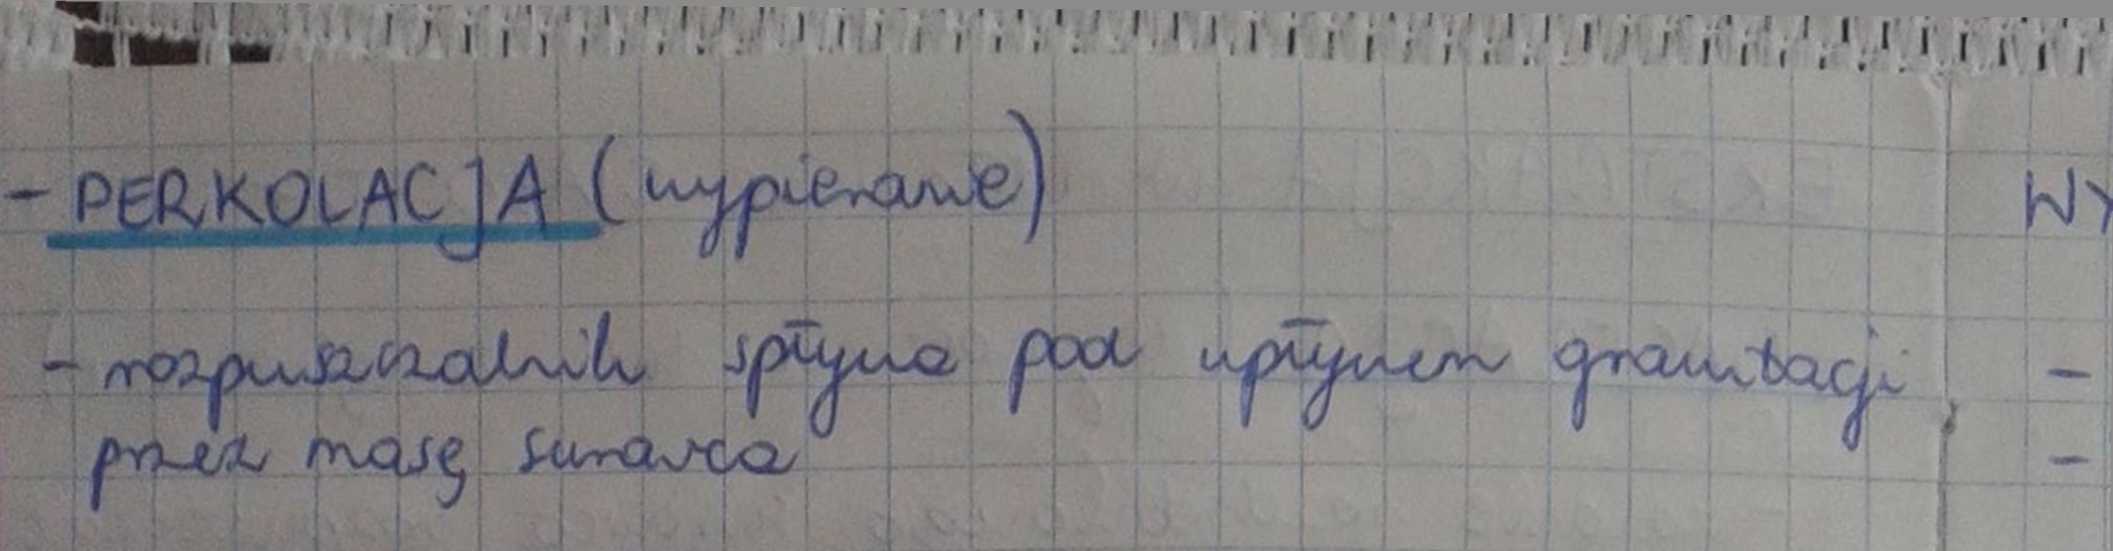 - PERKOLACJA (wypieranie)
- rozpuszczalnik spływa pod wpływem grawitacji
przez masę surowca
WY
-
-